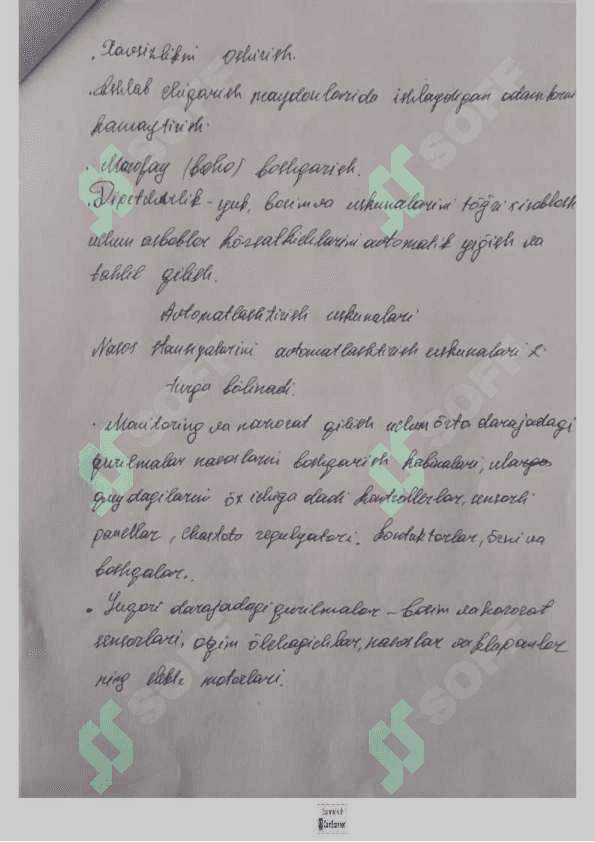 . Xavsizlikni oshirish.
. Ishlab chiqarish maydonlarida ishlaydigan odamlarni
kamaytirish.
. Masofay (baho) boshqarish.
. Dipetcherlik - yuk, bosim va uskunalarini to'g'ri xisoblash
uchun asboblar ko'rsatkichlarini avtomatik yig'ish va
tahlil qilish.
Avtomatlashtirish uskunalari
Nasos stansiyalarini avtomatlashtirish uskunalari 2
turga bo'linadi.
. Monitoring va nazorat qilish uchun o'rta darajadagi
qurilmalar nasoslarni boshqarish kabinalari, ularga
quydagilarni o'z ichiga oladi kontrollerlar, sensorli
panellar, chastota regulyatori. kontaktorlar,
boshqalar..
. Yuqori darajadagi qurilmalar - bosim va harorat
sensorlari, oqim o'lchagichlar, nasoslar va klapanlar
ning elektr motorlari.
SOFF
SOFF
SOFF
SOFF
SOFF
SOFF
CamScanner